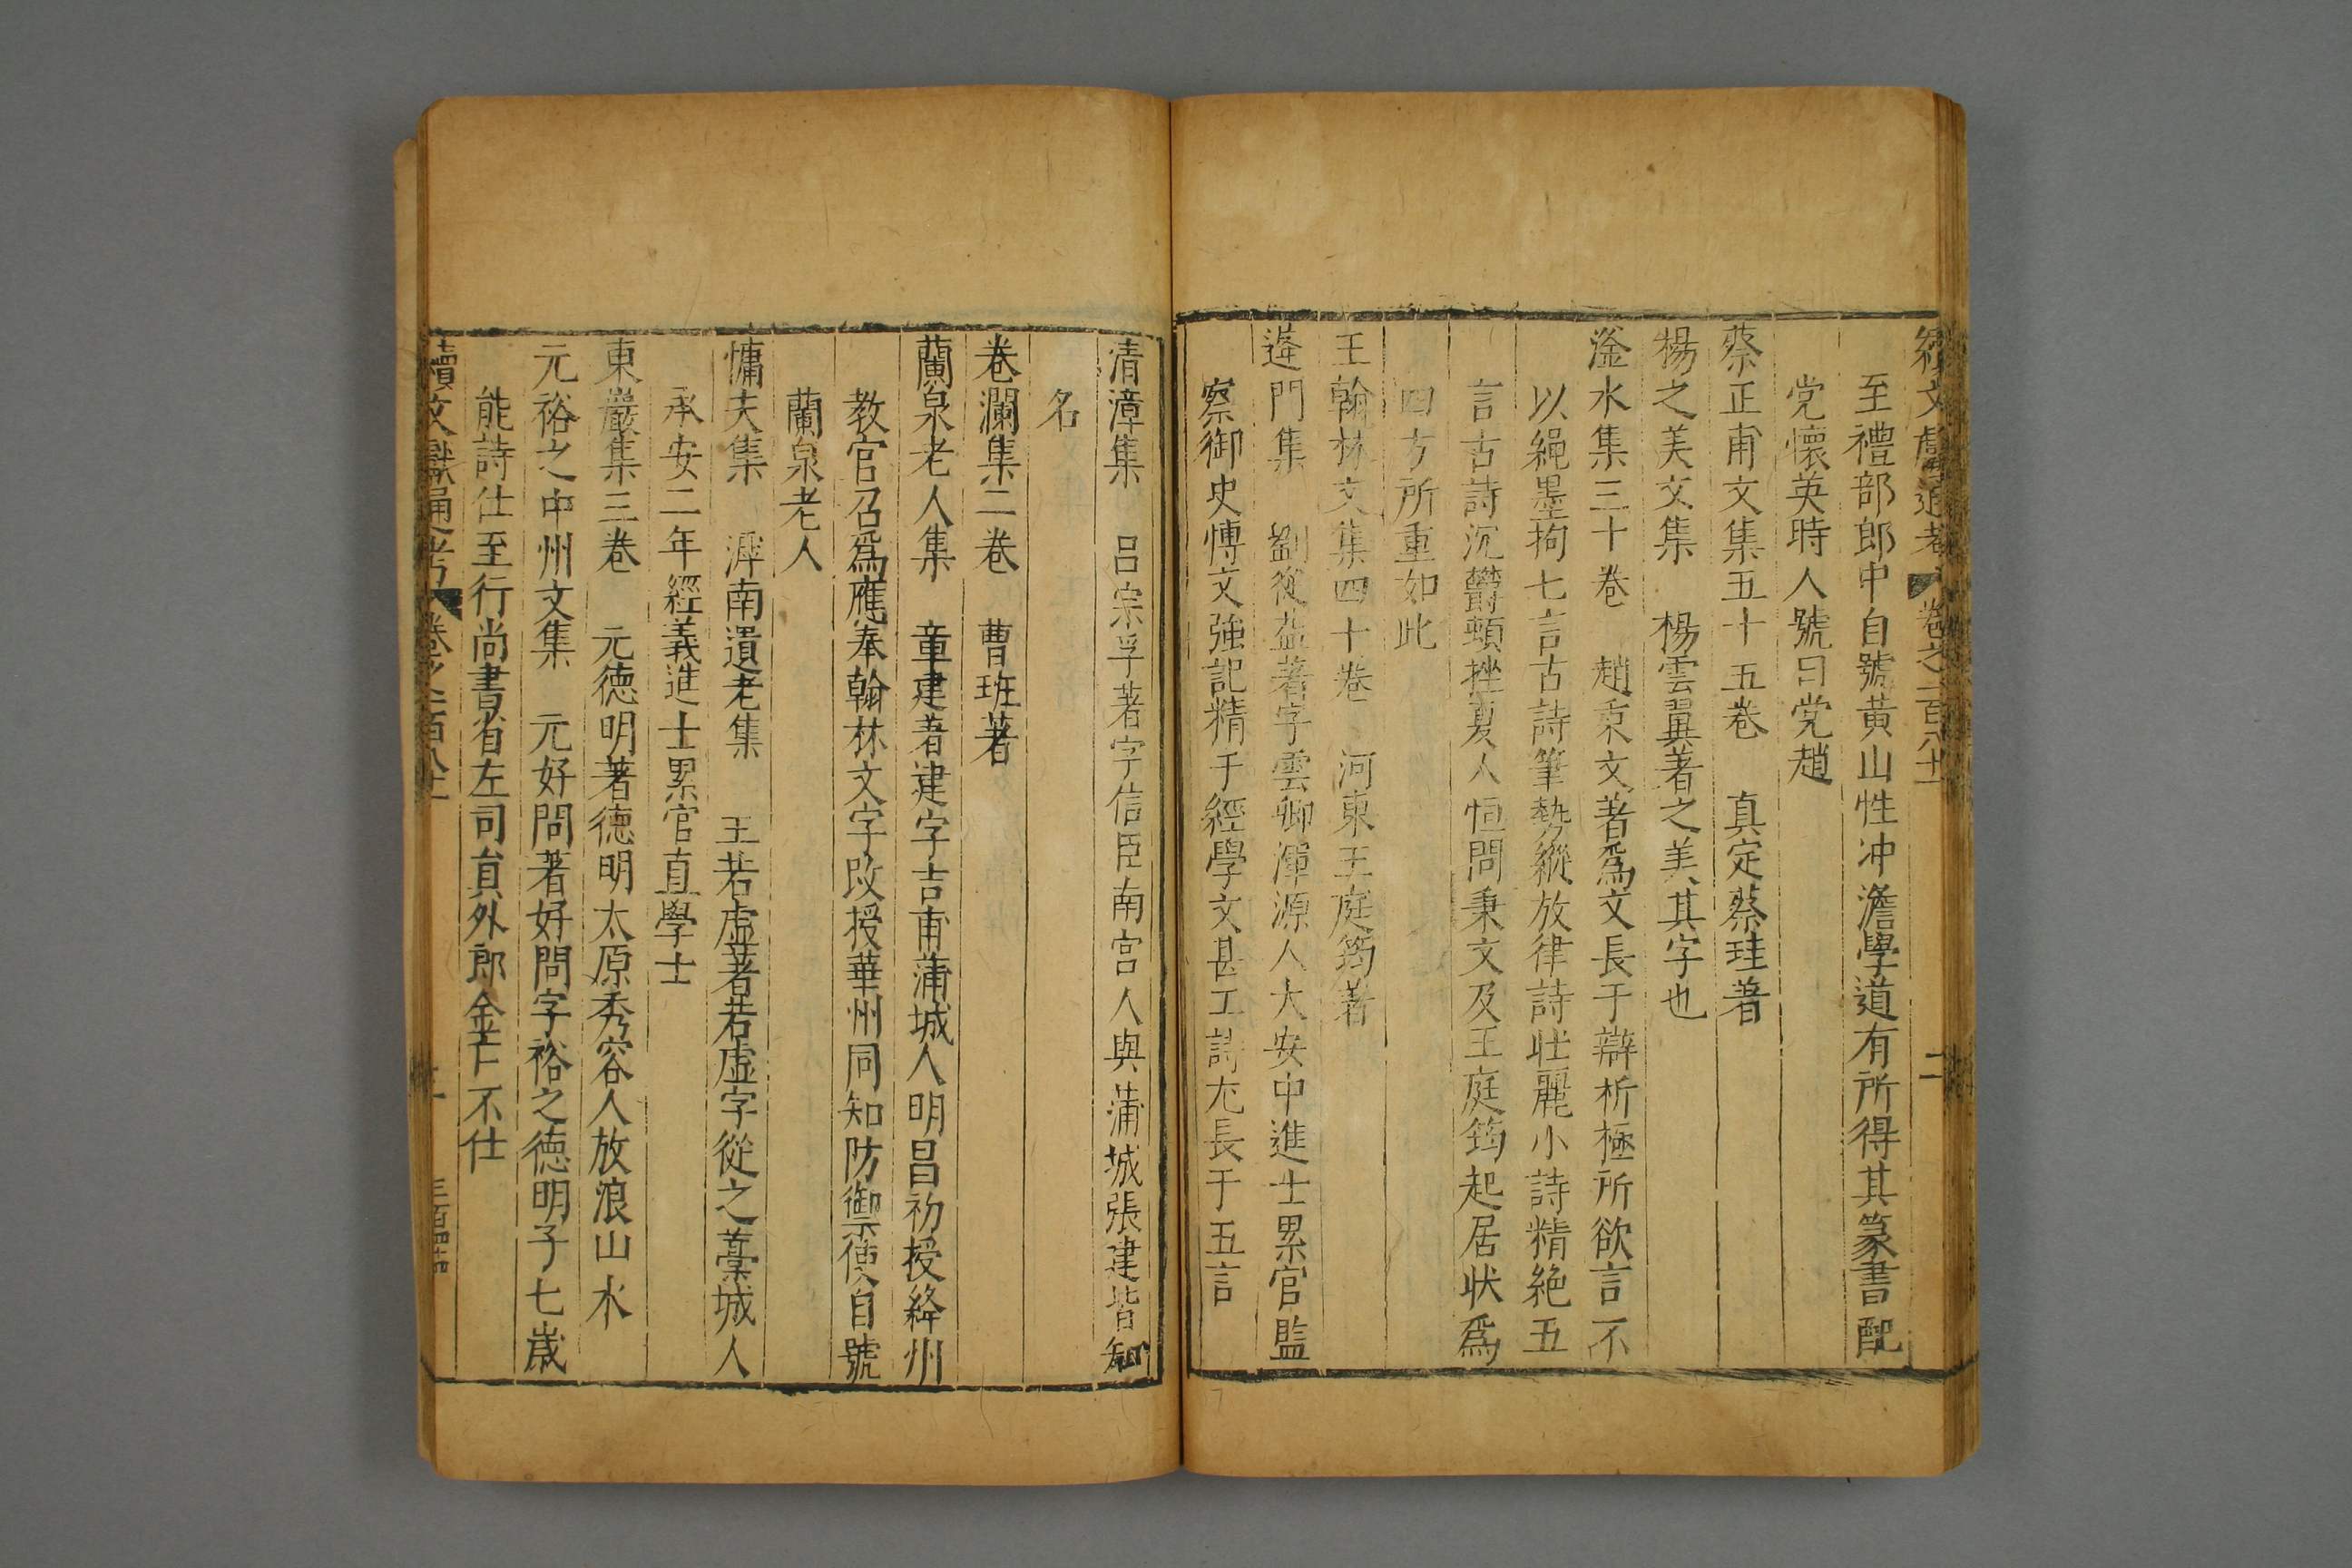 續文獻通考 卷之一百八十一 二
至禮部郎中自號黃山性冲澹學道有所得其篆書配
党懷英時人號曰党趙
蔡正甫文集五十五卷 真定蔡珪著
楊之美文集 楊雲翼著之美其字也
滏水集三十卷 趙秉文著爲文長于辯析極所欲言不
以繩墨拘七言古詩筆勢縱放律詩壯麗小詩精絶五
言古詩沉鬱頓挫夏人恒問秉文及王庭筠起居狀爲
四方所重如此
王翰林文集四十卷 河東王庭筠著
逄門集 劉從益著字雲卿渾源人大安中進士累官監
察御史愽文強記精于經學文甚工詩尤長于五言
清漳集 呂宗孚著字信臣南宮人與蒲城張建皆知
名
卷瀾集二卷 曹珏著
蘭泉老人集 童建著建字吉甫蒲城人明昌初授絳州
教官召爲應奉翰林文字改授華州同知防禦使自號
蘭泉老人
慵夫集 滹南遺老集 王若虛著若虛字從之藁城人
承安二年經義進士累官直學士
東巖集三卷 元德明著德明太原秀容人放浪山水
元裕之中州文集 元好問著好問字裕之德明子七歲
能詩仕至行尚書省左司員外郎金亡不仕
續文獻通考 卷之一百八十一